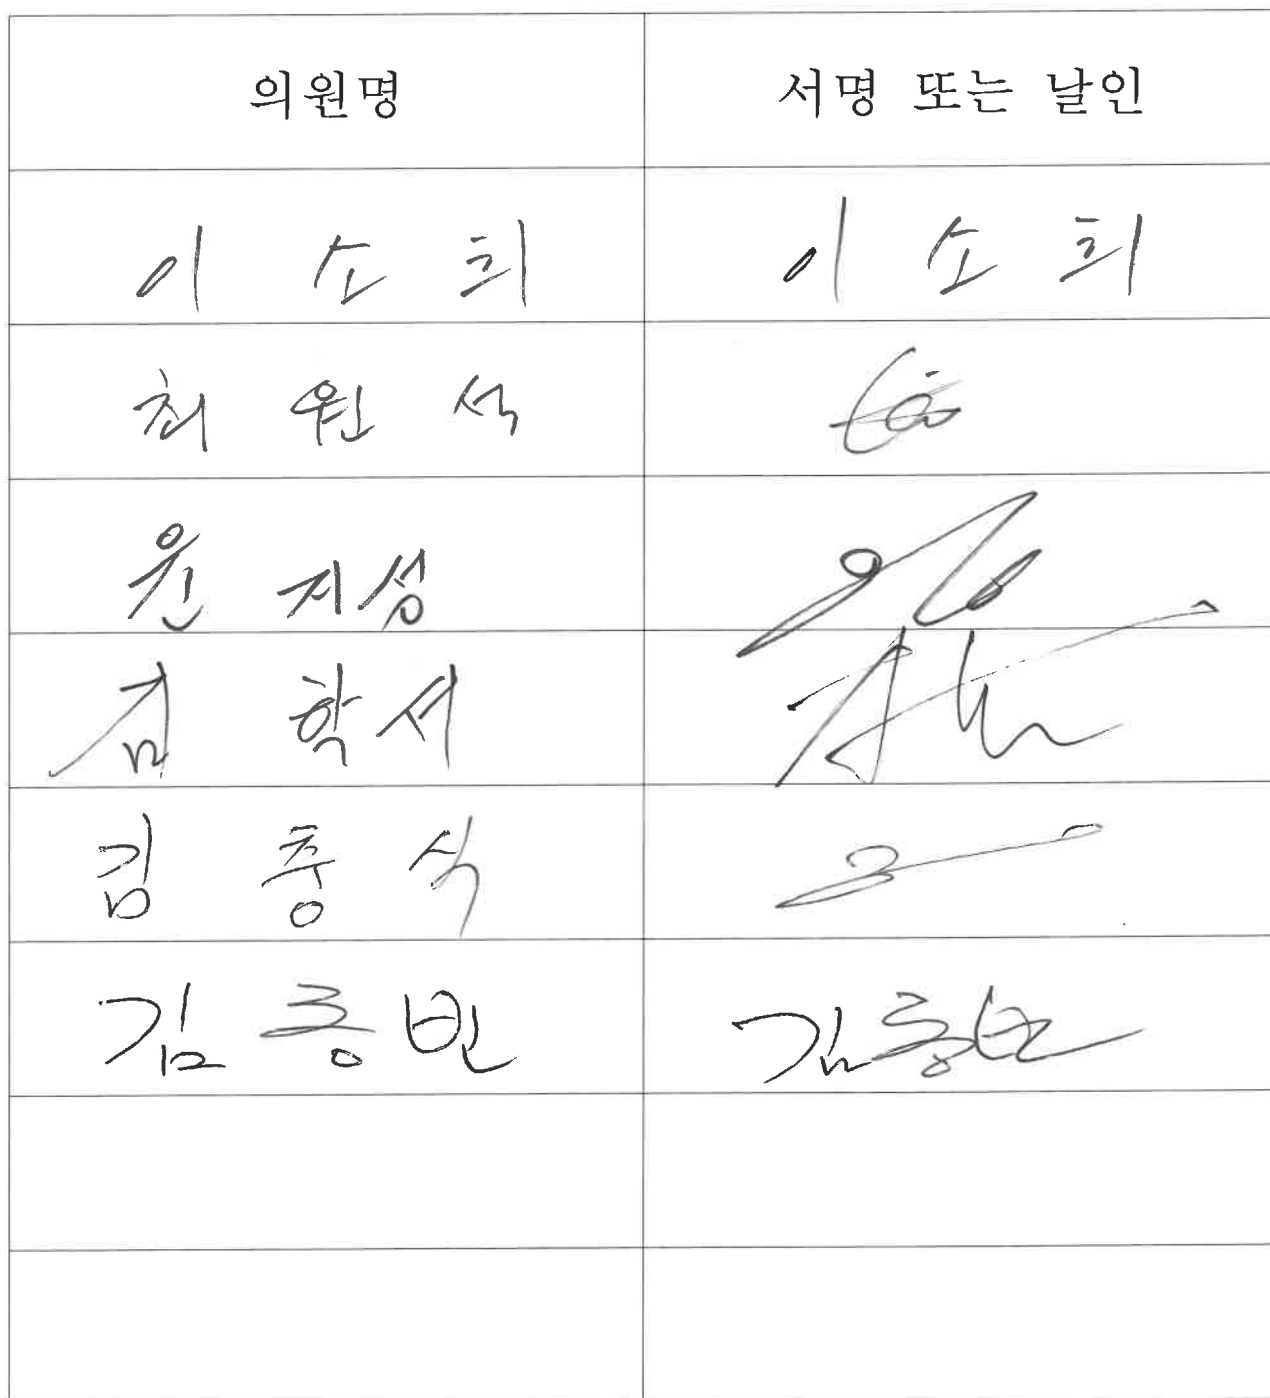 의원명 서명 또는 날인
이 소 희 이 소 희
최 원 석
윤 지성
김 학서
김 충 식
김 충 빈 김충빈